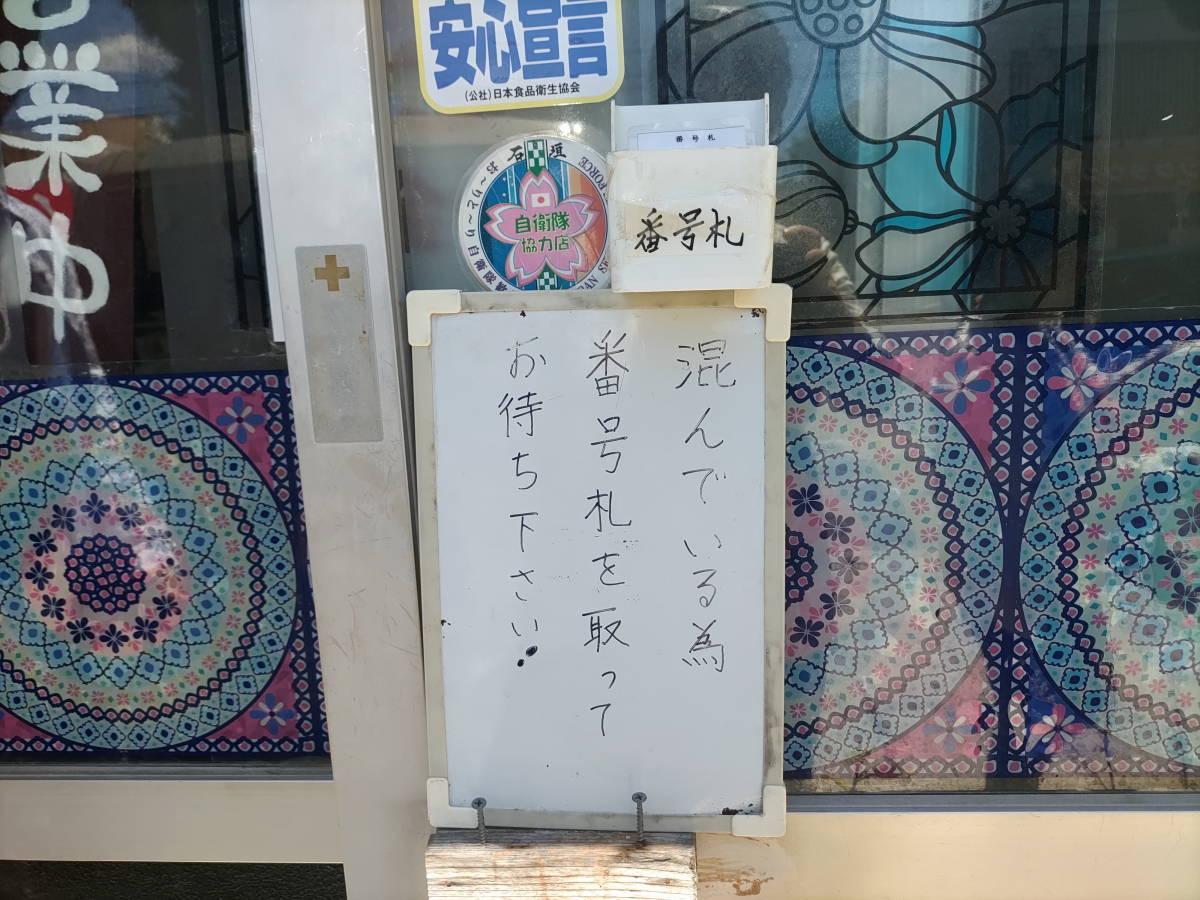 営業中
安心宣言
(公社)日本食品衛生協会
石垣
自衛隊
協力店
お〜りと〜り自衛隊
番号札
番号札
混んでいる為
番号札を取って
お待ち下さい.